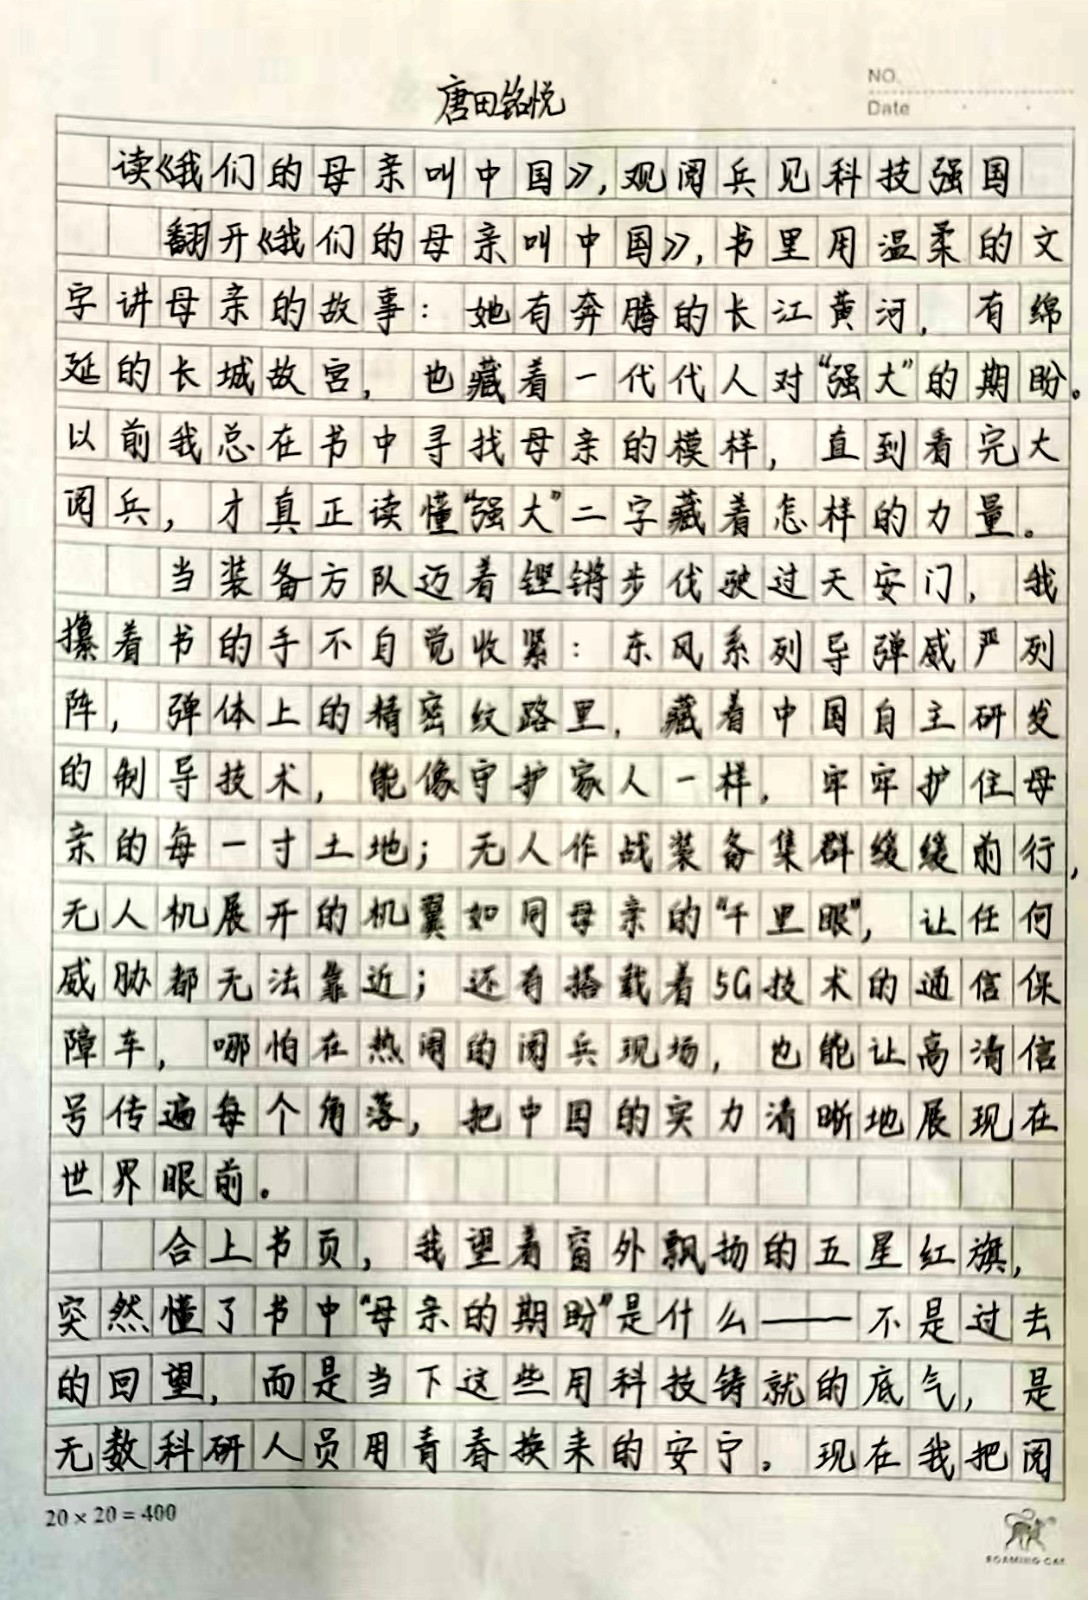 NO.
唐田铭悦
Date
读《我们的母亲叫中国》,观阅兵见科技强国
翻开《我们的母亲叫中国》,书里用温柔的文
字讲母亲的故事：她有奔腾的长江黄河，有绵
延的长城故宫，也藏着一代代人对“强大”的期盼。
以前我总在书中寻找母亲的模样，直到看完大
阅兵，才真正读懂“强大”二字藏着怎样的力量。
当装备方队迈着铿锵步伐驶过天安门，我
攥着书的手不自觉收紧：东风系列导弹威严列
阵，弹体上的精密纹路里，藏着中国自主研发
的制导技术，能像守护家人一样，牢牢护住母
亲的每一寸土地；无人作战装备集群缓缓前行，
无人机展开的机翼如同母亲的“千里眼”，让任何
威胁都无法靠近；还有搭载着5G技术的通信保
障车，哪怕在热闹的阅兵现场，也能让高清信
号传遍每个角落，把中国的实力清晰地展现在
世界眼前。
合上书页，我望着窗外飘扬的五星红旗，
突然懂了书中“母亲的期盼”是什么——不是过去
的回望，而是当下这些用科技铸就的底气，是
无数科研人员用青春换来的安宁。现在我把阅
20×20=400
ROAMING CAT